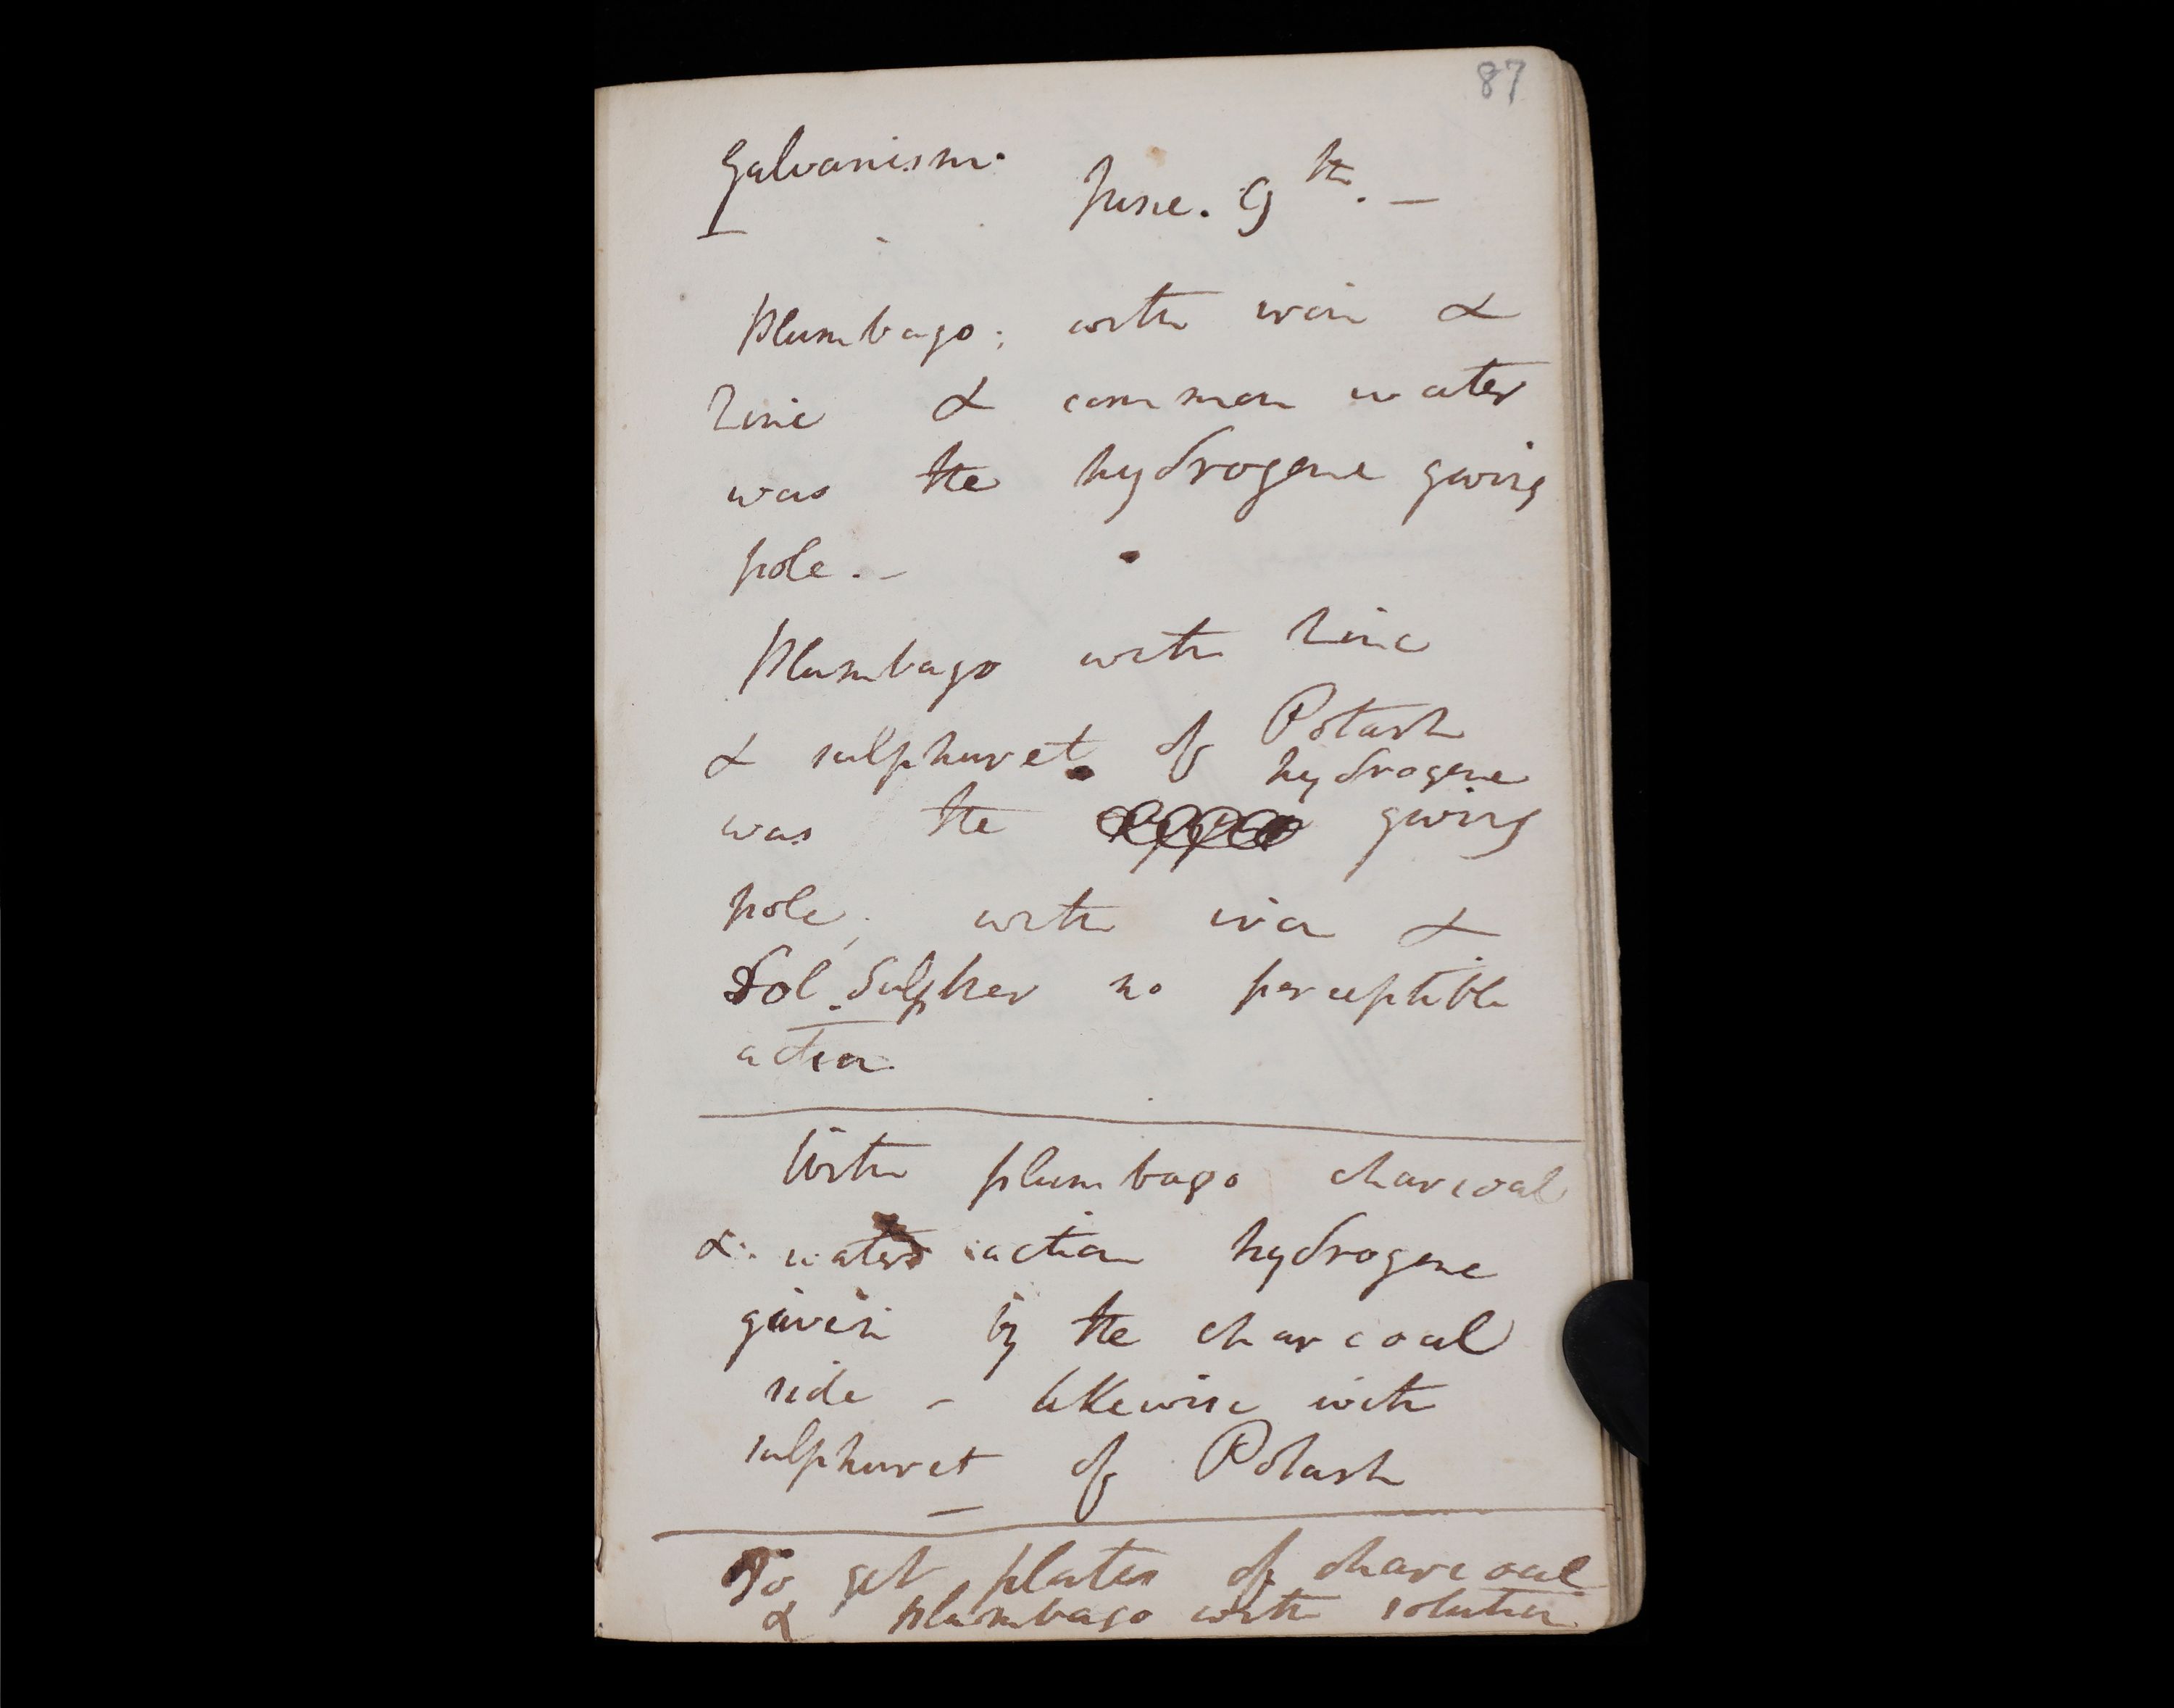 87
Galvanism.
June. 9th. —
Plumbago; with iron &
Zinc & common water
was the hydrogene giving
pole. –
Plumbago with Zinc
& sulphuret of Potash
hydrogene
was the giving
pole; with iron &
Sol. Sulpher no perceptible
action
With plumbago charcoal
& water action hydrogene
given by the charcoal
side – likewise with
sulphuret of Potash
—
To get plates of charcoal
& plumbago with solution